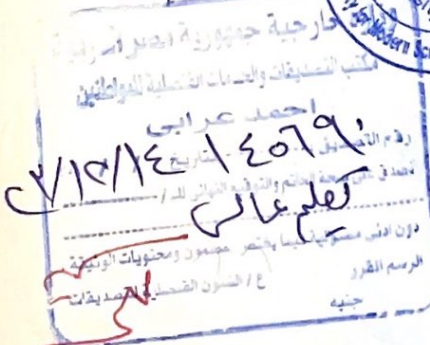 خارجية جمهورية مصر العربية
مكتب التصديقات والخدمات القنصلية للمواطنين
احمد عرابى
رقم التصديق ١٤٥٦٩ بتاريخ
تصدق على صحة الخاتم والتوقيع التالى للـ /
تعليم عالى
دون ادنى مسئولية فيما يختص مضمون ومحتويات الوثيقة
الرسم المقرر ع / الشئون القنصلية والتصديقات
جنيه
for Modern Sc